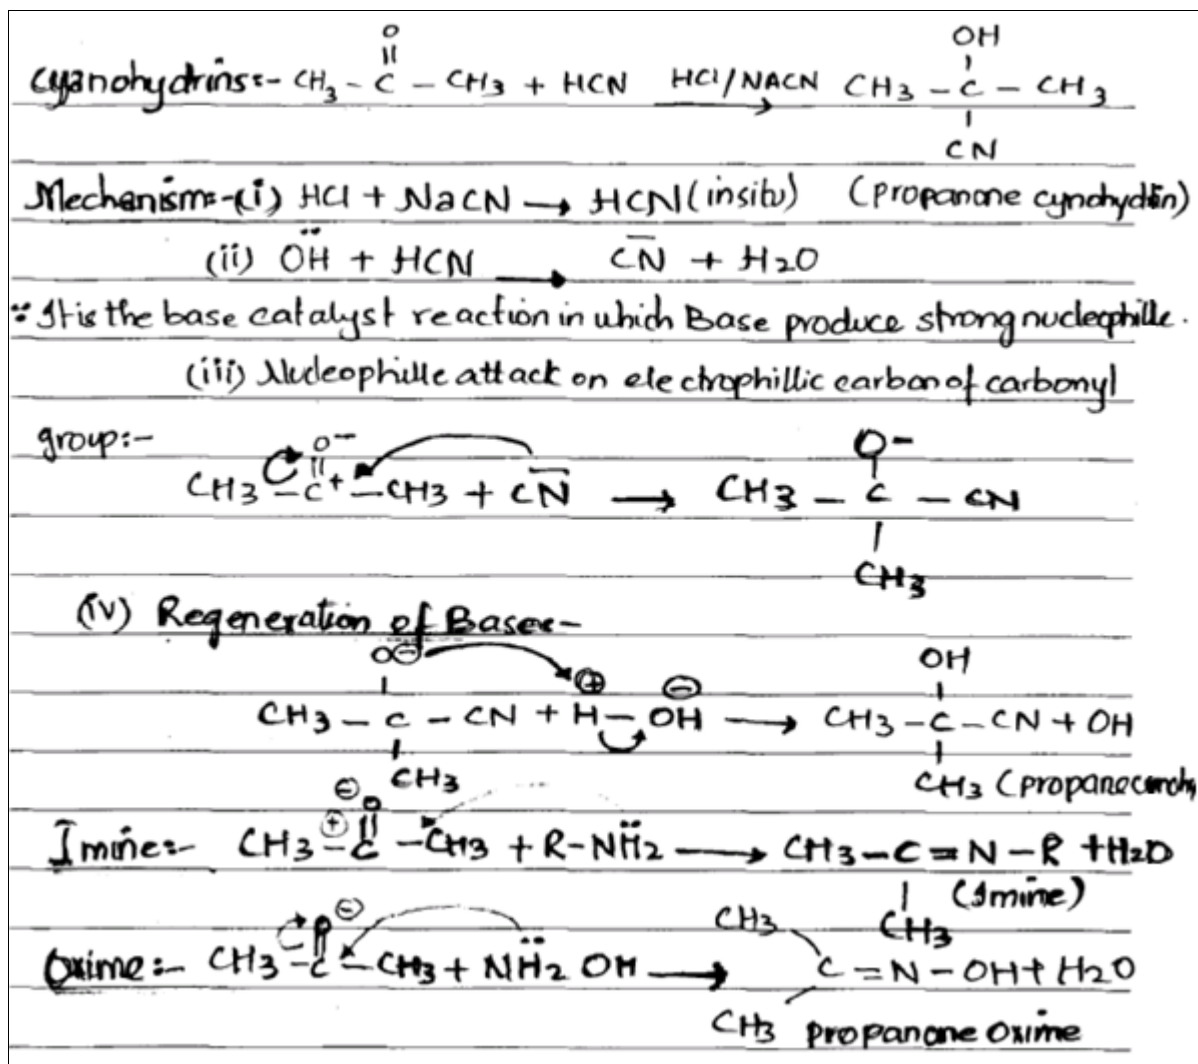 O
||
OH
|
cyanohydrins:- CH3 - C - CH3 + HCN HCl/NACN → CH3 - C - CH3
|
CN
Mechanism:-(i) HCl + NaCN → HCN (insitu) (propanone cynohydin)
(ii) ÖH + HCN → C̄N + H2O
∵ It is the base catalyst reaction in which Base produce strong nucleophille.
(iii) Nucleophille attack on electrophillic carbon of carbonyl
group:-
O-
||
O-
|
CH3 - C+ - CH3 + C̄N → CH3 - C - CN
|
CH3
(iv) Regeneration of Base:-
O⊖
|
OH
|
CH3 - C - CN + H⊕ - OH⊖ → CH3 - C - CN + OH
|
CH3
|
CH3
⊖
O
Imine:- CH3 - C⊕ - CH3 + R-N̈H2 → CH3 - C = N - R + H2O
|
CH3
(Imine)
O⊖
CH3
Oxime:- CH3 - C - CH3 + N̈H2 OH → C = N - OH + H2O
CH3 propanone Oxime